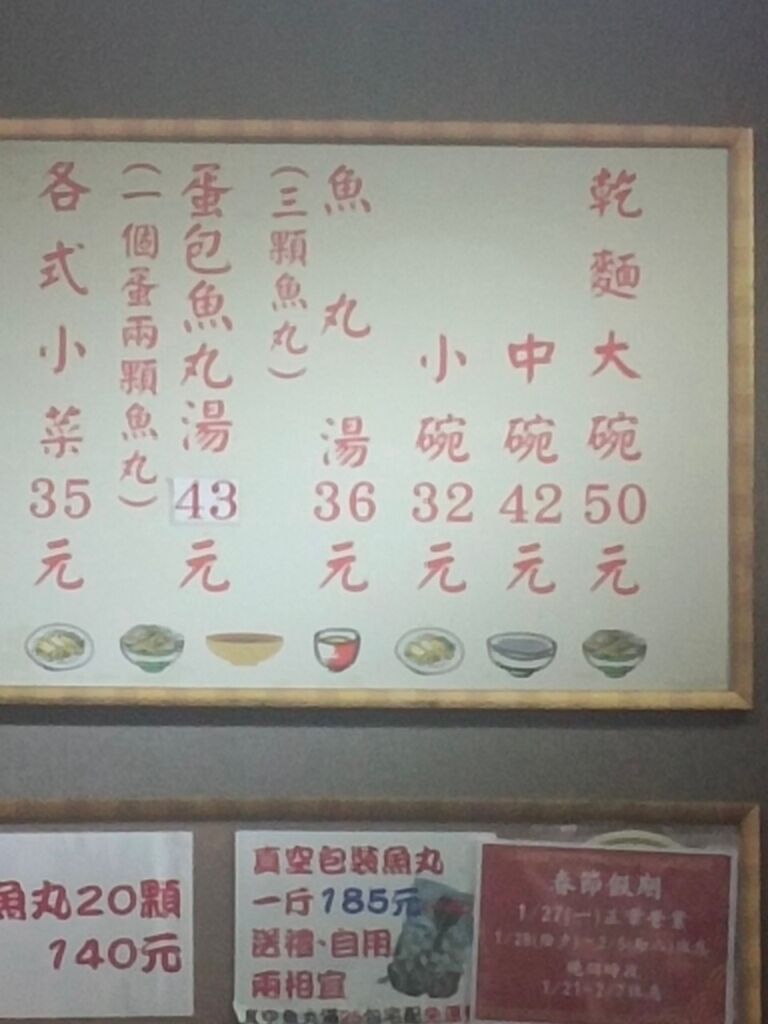 乾麵大碗50元
中碗42元
小碗32元
魚丸湯36元
(三顆魚丸)
蛋包魚丸湯43元
(一個蛋兩顆魚丸)
各式小菜35元
魚丸20顆
140元
真空包裝魚丸
一斤185元
送禮·自用
兩相宜
真空魚丸滿25包宅配免運
春節假期
1/27(一)正常營業